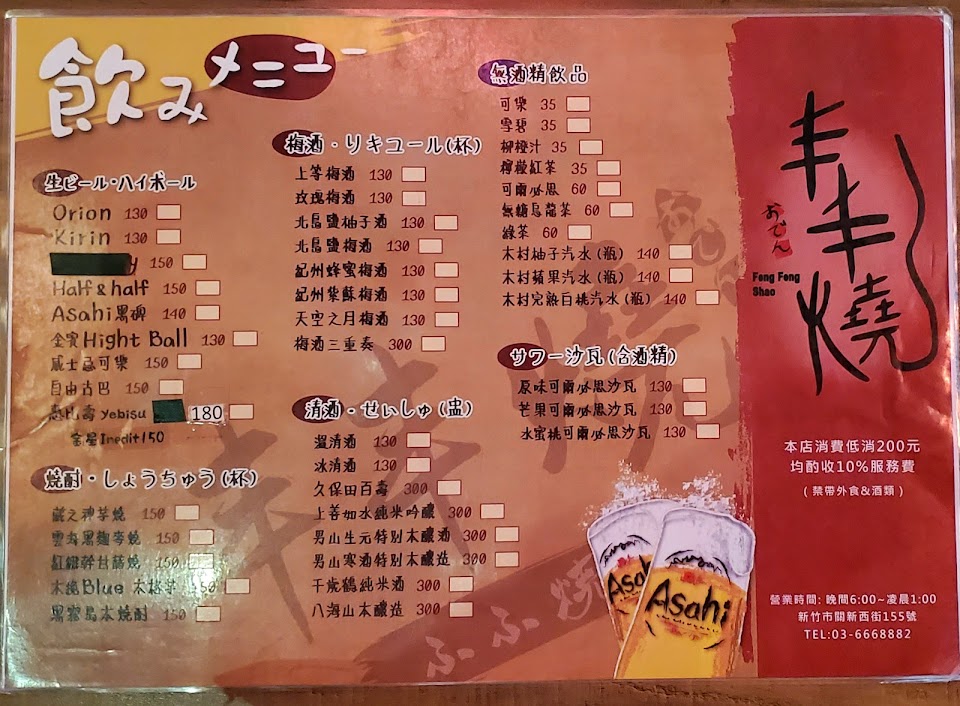 飲みメニュー
生ビール・ハイボール
Orion 130
Kirin 130
y 150
Half & half 150
Asahi黑啤 140
金賓Hight Ball 130
威士忌可樂 150
自由古巴 150
惠比壽 yebisu 180
富星Inedit150
焼酎・しょうちゅう(杯)
藏之神芋燒 150
雲海黑麴麥燒 150
紅 甘藷燒 150
木挽Blue 本格芋 150
黑霧島本焼酎 150
梅酒・リキュール(杯)
上等梅酒 130
玫瑰梅酒 130
北島鹽柚子酒 130
北島鹽梅酒 130
紀州蜂蜜梅酒 130
紀州紫蘇梅酒 130
天空之月梅酒 130
梅酒三重奏 300
清酒・せいしゅ(盅)
溫清酒 130
冰清酒 130
久保田百壽 300
上善如水純米吟釀 300
男山生元特別本釀酒 300
男山寒酒特別本釀造 300
千歲鶴純米酒 300
八海山本釀造 300
無酒精飲品
可樂 35
雪碧 35
柳橙汁 35
檸檬紅茶 35
可爾必思 60
無糖烏龍茶 60
綠茶 60
木村柚子汽水(瓶) 140
木村蘋果汽水(瓶) 140
木村完熟白桃汽水(瓶) 140
サワー沙瓦(含酒精)
原味可爾必思沙瓦 130
芒果可爾必思沙瓦 130
水蜜桃可爾必思沙瓦 130
ふふ燒
Asahi
Asahi
丰丰燒
おでん
Feng Feng
Shao
本店消費低消200元
均酌收10%服務費
(禁帶外食&酒類)
營業時間: 晚間6:00~凌晨1:00
新竹市關新西街155號
TEL:03-6668882